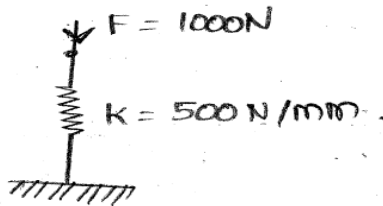 F = 1000N
K = 500 N/mm.